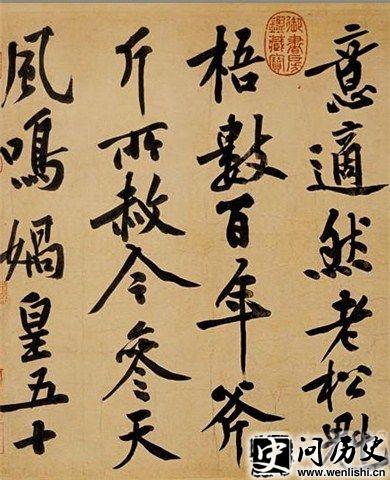 意適然老松魁
梧數百年斧
斤所赦今參天
風鳴媧皇五十
御書房
鑑藏寶
史 问历史
www.wenlishi.cn